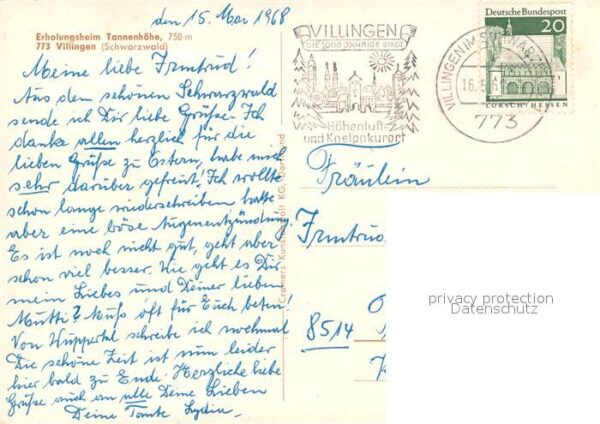 den 15. Mai 1968
Erholungsheim Tannenhöhe, 750 m
773 Villingen (Schwarzwald)
Meine liebe Irmtrud!
Aus dem schönen Schwarzwald
sende ich Dir liebe Grüße. Ich
danke allen herzlich für die
lieben Grüße zu Ostern, habe mich
sehr darüber gefreut. Ich wollte
schon lange wiederschreiben hatte
aber eine böse Augenentzündung
Es ist noch nicht gut, geht aber
schon viel besser. Wie geht es Dir
mein Liebes und Deiner lieben
Mutti? Muß oft für Euch beten!
Von Wuppertal schreibe ich nochmal
Die schöne Zeit ist nun leider
hier bald zu Ende. Herzliche liebe
Grüße auch an alle Deine Lieben
Deine Tante Lydia.
Cramers Kunstanstalt KG, Dortmund
VILLINGEN
DIE 1000 JÄHRIGE STADT
Höhenluft-
und Kneippkurort
VILLINGEN IM SCHWARZW
16.5.68
773
Deutsche Bundespost
20
LORSCH/HESSEN
Fräulein
Irmtrud
8514
privacy protection
Datenschutz